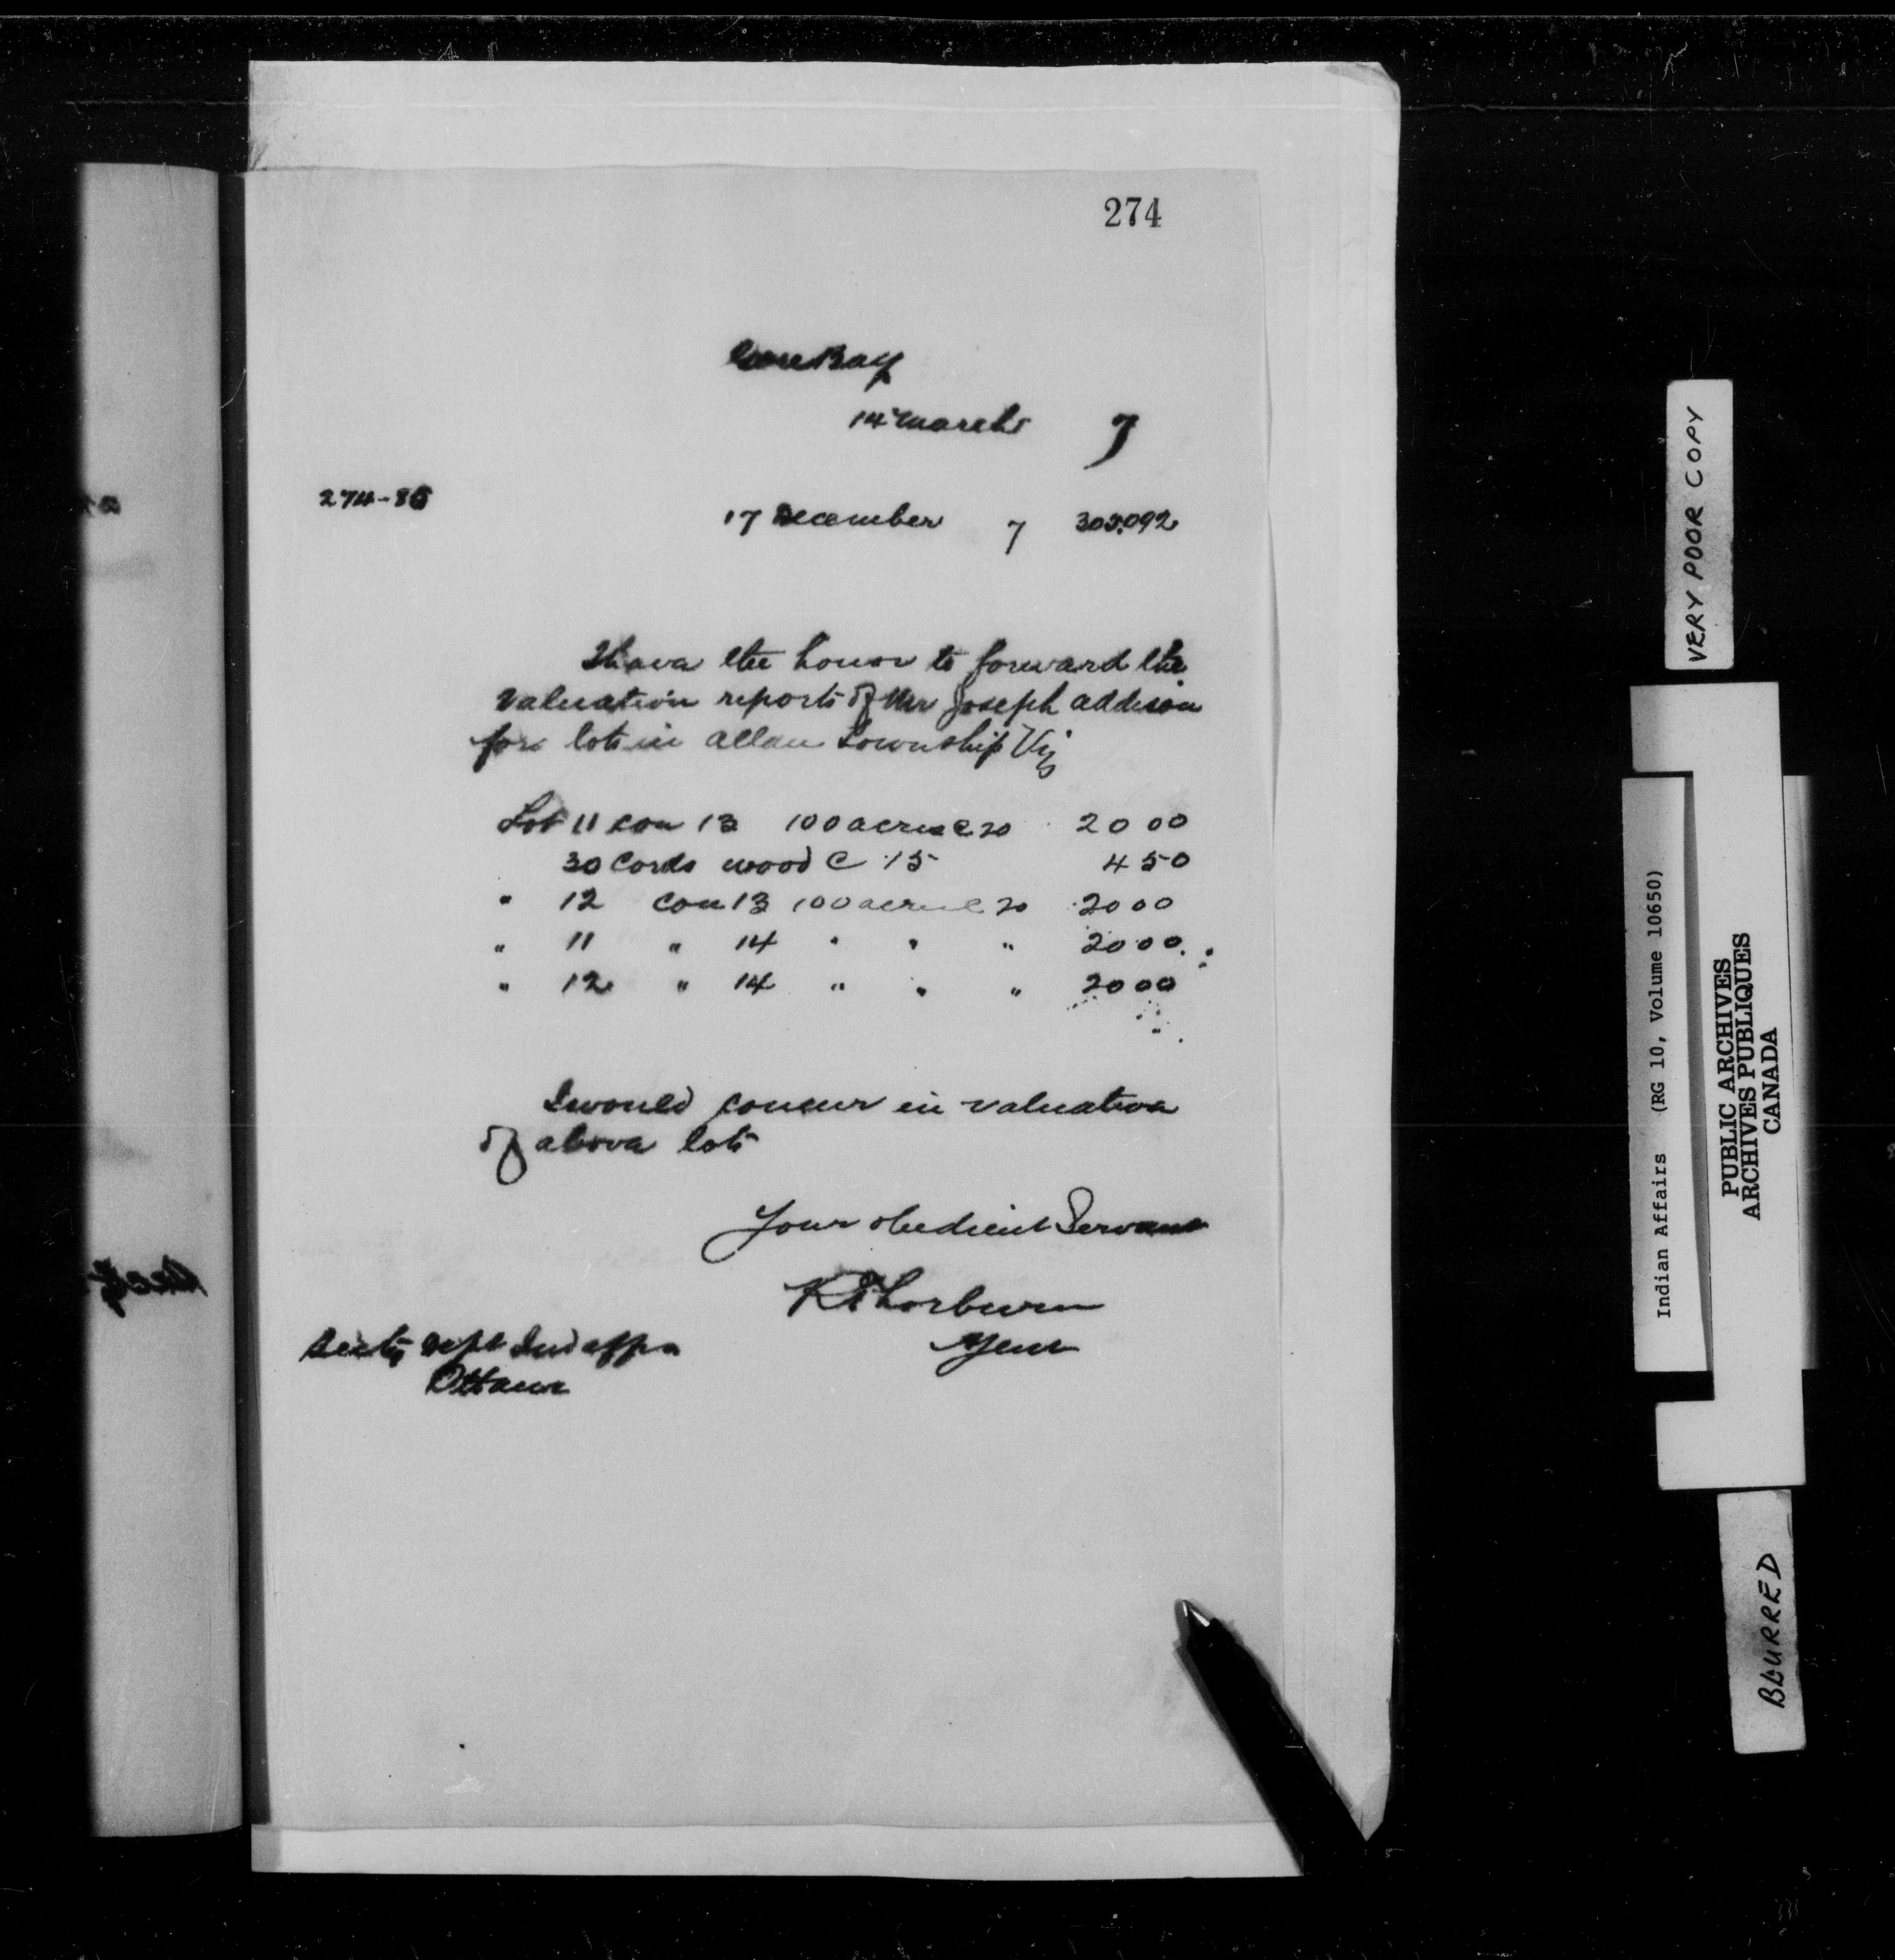 274
Gore Bay
14 March 7
274-86
17 December 7 303.092
I have the honor to forward the
valuation reports of Mr Joseph addison
for lots in allan Township Viz
Lot 11 con 13 100 acres @ 20 20 00
30 Cords wood @ 15 4 50
" 12 con 13 100 acres @ 20 20 00
" 11 " 14 " " " 20 00
" 12 " 14 " " " 20 00
I would concur in valuation
of above lots
Your obedient Servant
R Thorburn
Agent
Secty Dept Ind affrs
Ottawa
VERY POOR COPY
Indian Affairs (RG 10, Volume 10650)
PUBLIC ARCHIVES
ARCHIVES PUBLIQUES
CANADA
BLURRED